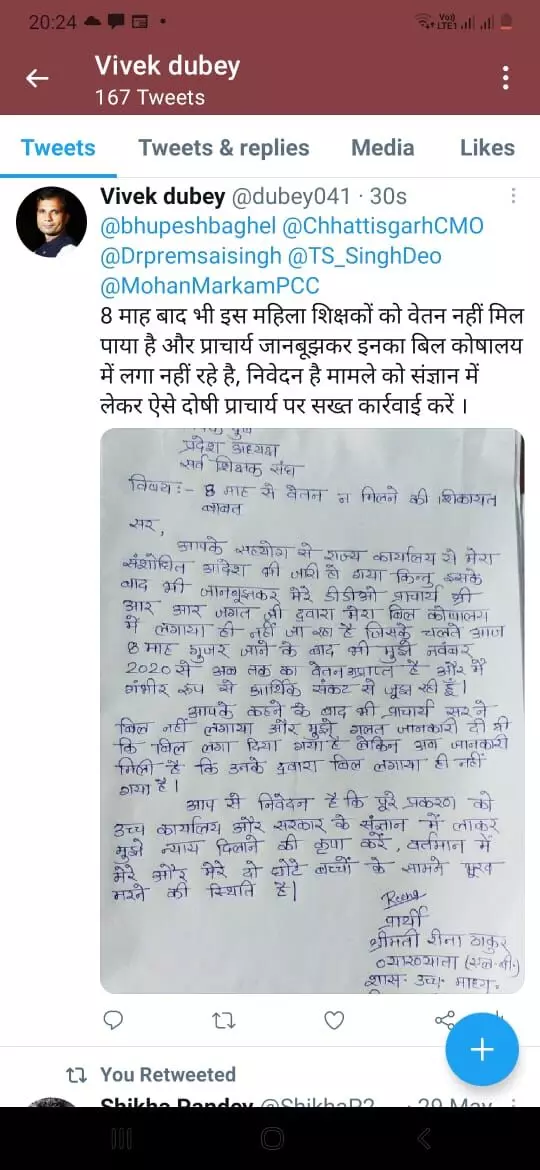 20:24
Vo)) LTE1
Vivek dubey
167 Tweets
Tweets Tweets & replies Media Likes
Vivek dubey @dubey041 · 30s
@bhupeshbaghel @ChhattisgarhCMO
@Drpremsaisingh @TS_SinghDeo
@MohanMarkamPCC
8 माह बाद भी इस महिला शिक्षकों को वेतन नहीं मिल
पाया है और प्राचार्य जानबूझकर इनका बिल कोषालय
में लगा नहीं रहे है, निवेदन है मामले को संज्ञान में
लेकर ऐसे दोषी प्राचार्य पर सख्त कार्रवाई करें ।
प्रदेश अध्यक्ष
सर्व शिक्षक संघ
विषय:- 8 माह से वेतन न मिलने की शिकायत
बाबत
सर,
आपके सहयोग से राज्य कार्यालय से मेरा
संशोधित आदेश भी जारी हो गया किन्तु इसके
बाद भी जानबूझकर मेरे डीडीओ प्राचार्य श्री
आर आर जगत जी द्वारा मेरा बिल कोषालय
में लगाया ही नहीं जा रहा है जिसके चलते आज
8 माह गुजर जाने के बाद भी मुझे नवंबर
2020 से अब तक का वेतन अप्राप्त है और मैं
गंभीर रूप से आर्थिक संकट से जूझ रही हूँ।
आपके कहने के बाद भी प्राचार्य सर ने
बिल नहीं लगाया और मुझे गलत जानकारी दी थी
कि बिल लगा दिया गया है लेकिन अब जानकारी
मिली है कि उनके द्वारा बिल लगाया ही नहीं
गया है।
आप से निवेदन है कि पूरे प्रकरण को
उच्च कार्यालय और सरकार के संज्ञान में लाकर
मुझे न्याय दिलाने की कृपा करें, वर्तमान में
मेरे और मेरे दो छोटे बच्चों के सामने भूख
मरने की स्थिति है।
Reena
प्रार्थी
श्रीमती रीना ठाकुर
व्याख्याता (एल.बी.)
शास. उच्च. माध्य.
You Retweeted
Shikha Pandey @ShikhaP2 29 May